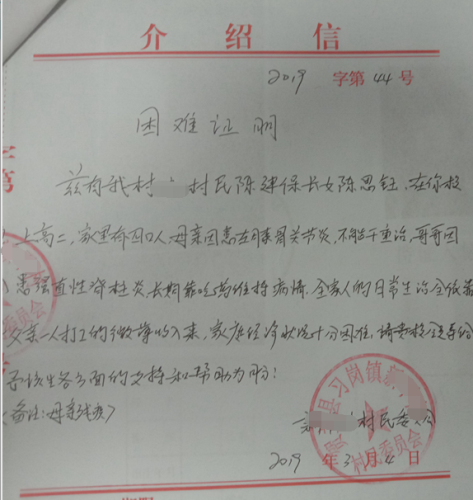 介绍信
2019 字第 44 号
困难证明
兹有我村 村民陈建保长女陈思钰，在你校
上高二，家里有四口人，母亲因患左膝骨关节炎，不能干重活，哥哥因
患强直性脊柱炎，长期靠吃药维持病情。全家人的日常生活全依靠
父亲一人打工的微薄收入来，家庭经济状况十分困难，请贵校领导给
予该生各方面的支持和帮助为盼！
（备注：母亲残疾）
村民委员会
2019 年 3 月 4 日
县习岗镇新
村民委员会
字第